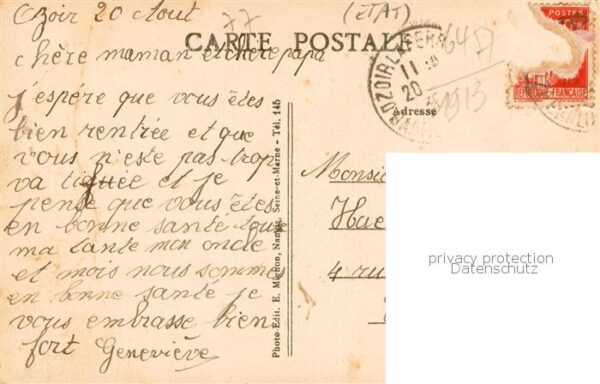 Ozoir 20 Aout
77
(ETAT)
CARTE POSTALE
chère maman et chère papa
j'espère que vous êtes
bien rentrée et que
vous n'este pas trop
va tiguée et je
pense que vous êtes
en bonne santé tous
ma tante mon oncle
et mois nous sommes
en bonne santé je
vous embrasse bien
fort Geneviève
Photo Edit. E. Mignon, Nangis, Seine-et-Marne - Tél. 145
OZOIR-LA-FERR
11
20
1913
Adresse
POSTES
RÉPUBLIQUE FRANÇAISE
Monsie
4 ru
privacy protection
Datenschutz